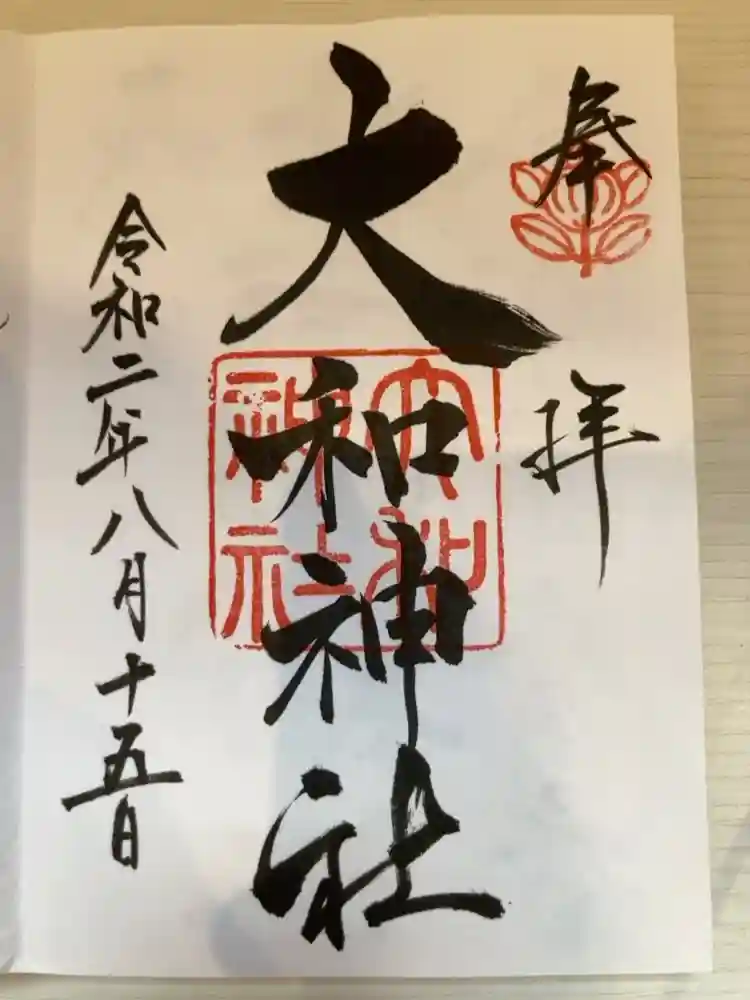 奉拝
大和神社
大和神社
令和二年八月十五日